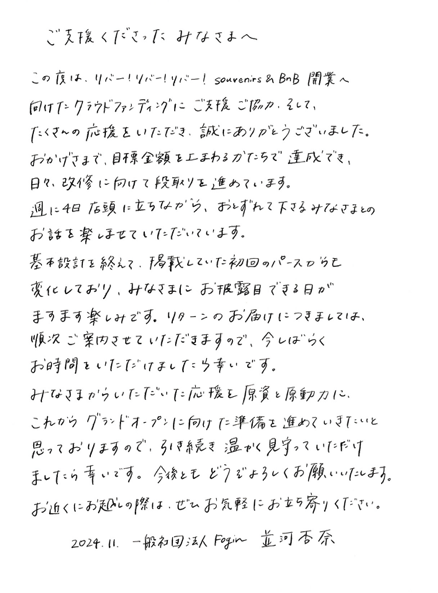 ご支援くださった みなさまへ
この度は、リバー！リバー！リバー！ souvenirs & BnB 開業へ
向けたクラウドファンディングに ご支援 ご協力、そして、
たくさんの応援をいただき、誠にありがとうございました。
おかげさまで、目標金額を上まわるかたちで 達成でき、
日々、改修に向けて段取りを進めています。
週に4日 店頭に立ちながら、おとずれて下さるみなさまとの
お話を楽しませていただいています。
基本設計を終えて、掲載していた初回のパースからも
変化しており、みなさまに お披露目できる日が
ますます楽しみです。リターンの お届けにつきましては、
順次 ご案内させていただきますので、今しばらく
お時間をいただけましたら幸いです。
みなさまからいただいた応援を 原資と原動力に、
これから グランドオープンに向けた準備を進めていきたいと
思っておりますので、引き続き 温かく見守っていただけ
ましたら幸いです。今後とも どうぞよろしくお願いいたします。
お近くにお越しの際は、ぜひ お気軽にお立ち寄りください。
2024.11. 一般社団法人 Fogin 並河杏奈